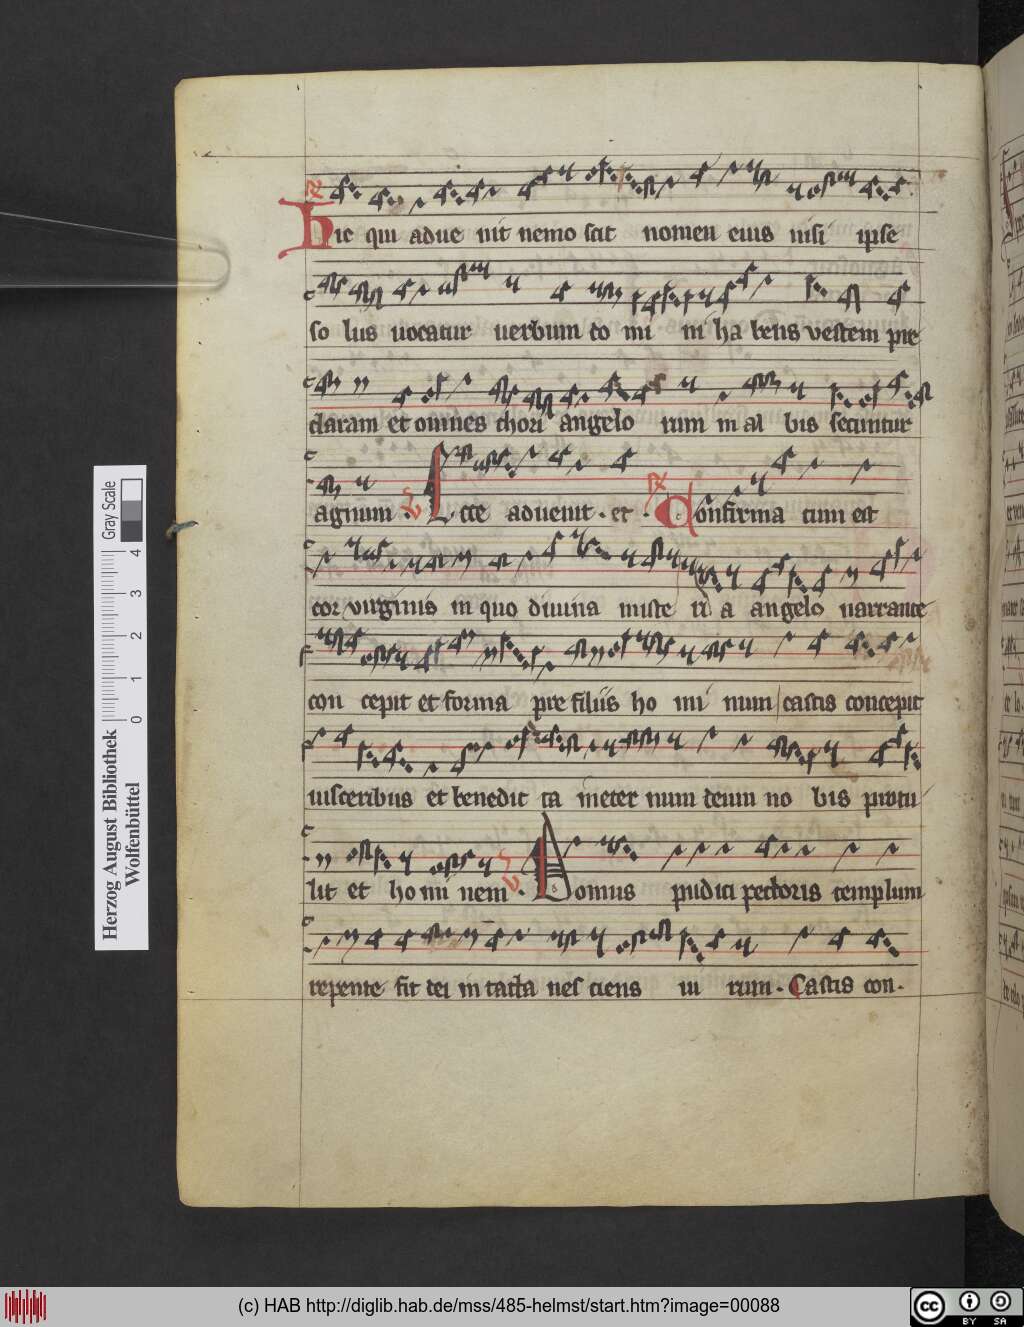 Hic qui adue nit nemo scit nomen eius nisi ipse
so lus uocatur uerbum do mi ni ha bens vestem pre
claram et omnes chori angelo rum in al bis secuntur
agnum. Ecce aduenit. et. Confirma tum est
cor virginis in quo diuina miste ri a angelo narrante
con cepit et forma pre filiis ho mi num castis concepit
uisceribus et benedic ta in eter num deum no bis protu
lit et ho mi nem. Domus pudici pectoris templum
repente fit dei in tacta nes ciens ui rum. Castis con.
Herzog August Bibliothek
Wolfenbüttel
0 1 2 3 4
Gray Scale
(c) HAB http://diglib.hab.de/mss/485-helmst/start.htm?image=00088
cc BY SA